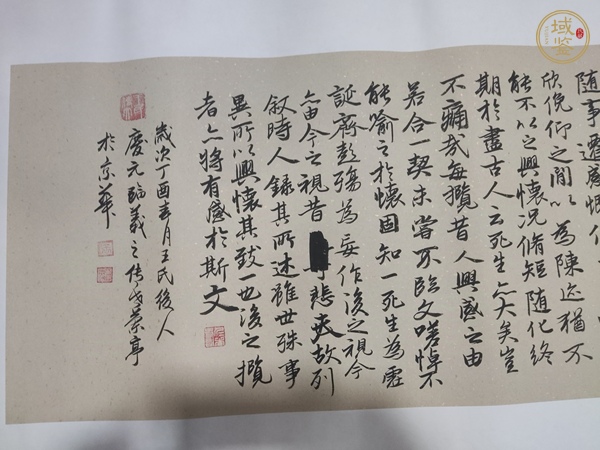 随事遷感慨
欣俛仰之閒以為陳迹猶不
能不以之興懷況脩短随化終
期於盡古人云死生亦大矣豈
不痛哉每攬昔人興感之由
若合一契未嘗不臨文嗟悼不
能喻之於懷固知一死生為虛
誕齊彭殤為妄作後之視今
亦由今之視昔悲夫故列
叙時人錄其所述雖世殊事
異所以興懷其致一也後之攬
者亦將有感於斯文
歲次丁酉春月王氏後人
慶元臨羲之傳世蘭亭
於京華
域鉴